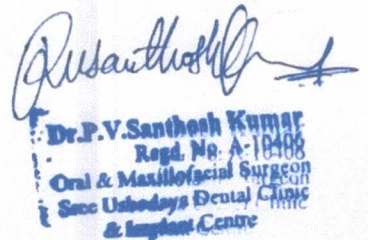 Dr.P.V.Santhosh Kumar
Regd. No. A-10408
Oral & Maxillofacial Surgeon
Sree Ushodaya Dental Clinic
& Implant Centre